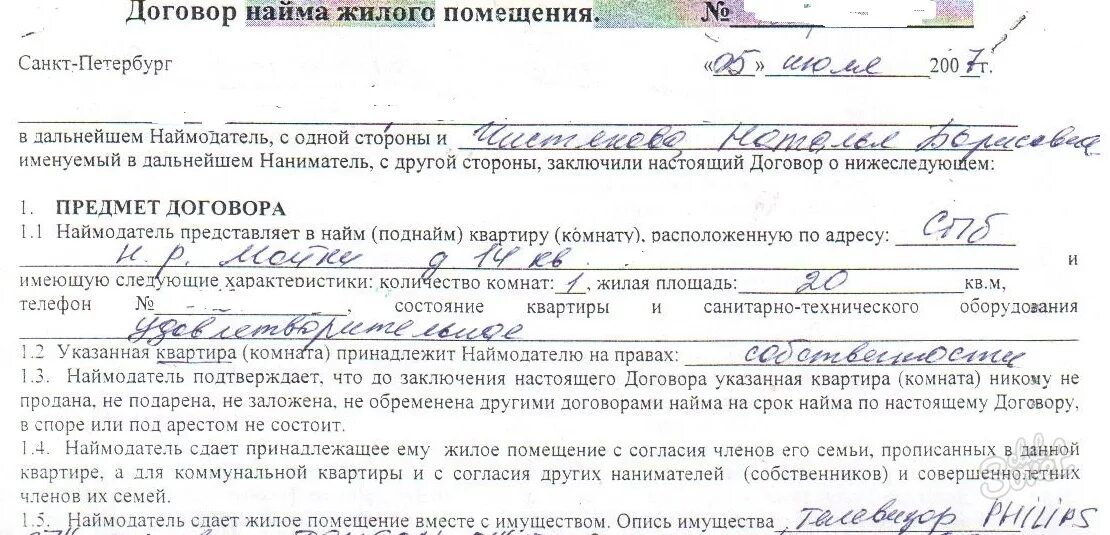 Договор найма жилого помещения. №
Санкт-Петербург «05» июля 2007г.
в дальнейшем Наймодатель, с одной стороны и Чистякова Наталья Борисовна
именуемый в дальнейшем Наниматель, с другой стороны, заключили настоящий Договор о нижеследующем:
1. ПРЕДМЕТ ДОГОВОРА
1.1 Наймодатель представляет в найм (поднайм) квартиру (комнату), расположенную по адресу: СПб
н. р. Мойки д 14 кв и
имеющую следующие характеристики: количество комнат: 1, жилая площадь: 20 кв.м,
телефон № , состояние квартиры и санитарно-технического оборудования
удовлетворительное
1.2 Указанная квартира (комната) принадлежит Наймодателю на правах: собственности
1.3. Наймодатель подтверждает, что до заключения настоящего Договора указанная квартира (комната) никому не
продана, не подарена, не заложена, не обременена другими договорами найма на срок найма по настоящему Договору,
в споре или под арестом не состоит.
1.4. Наймодатель сдает принадлежащее ему жилое помещение с согласия членов его семьи, прописанных в данной
квартире, а для коммунальной квартиры и с согласия других нанимателей (собственников) и совершеннолетних
членов их семей.
1.5. Наймодатель сдает жилое помещение вместе с имуществом. Опись имущества телевизор PHILIPS